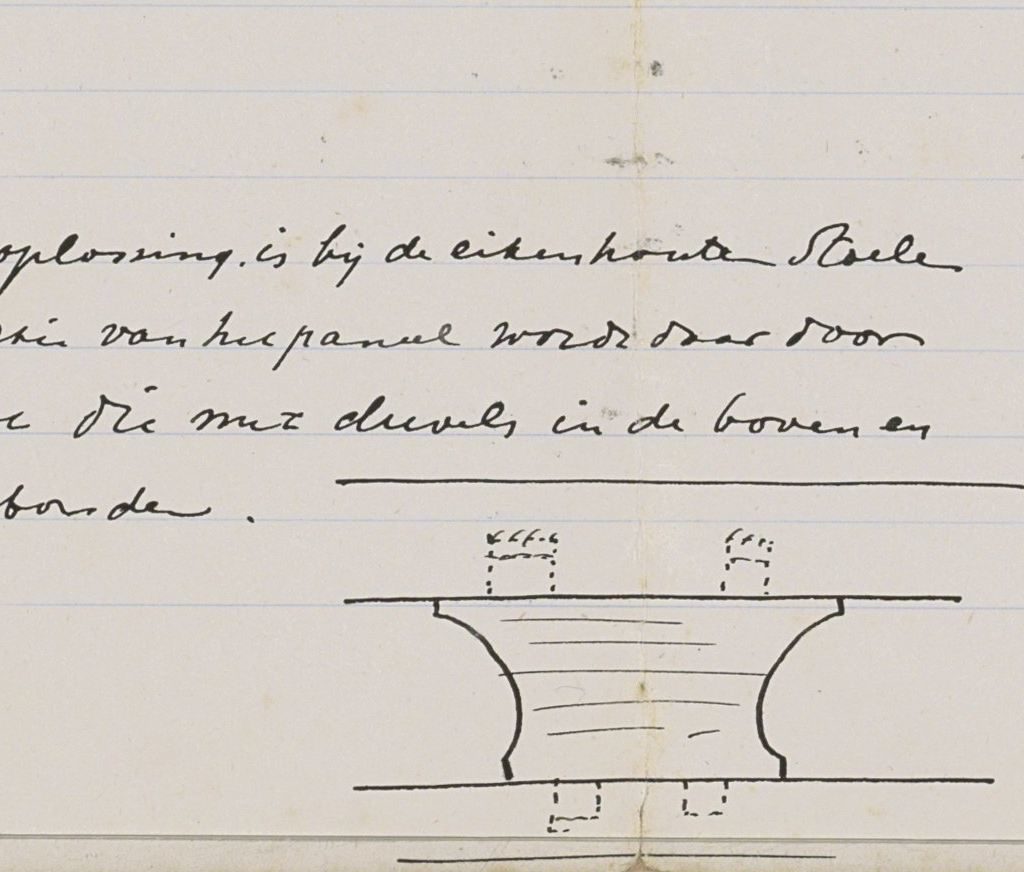 oplossing is bij de eikenhouten Stoele
van het paneel wordt daar door
die met deuvels in de boven en